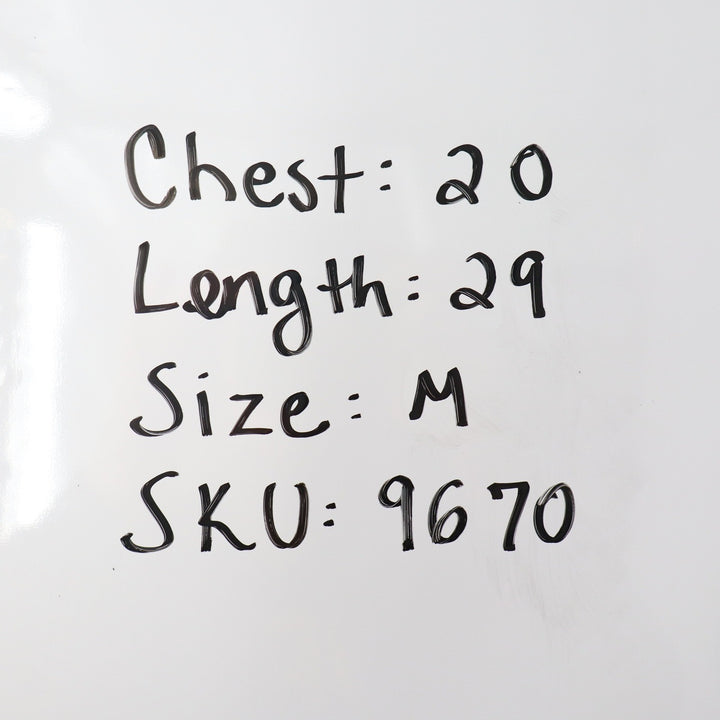 Chest: 20
Length: 29
Size: M
SKU: 9670